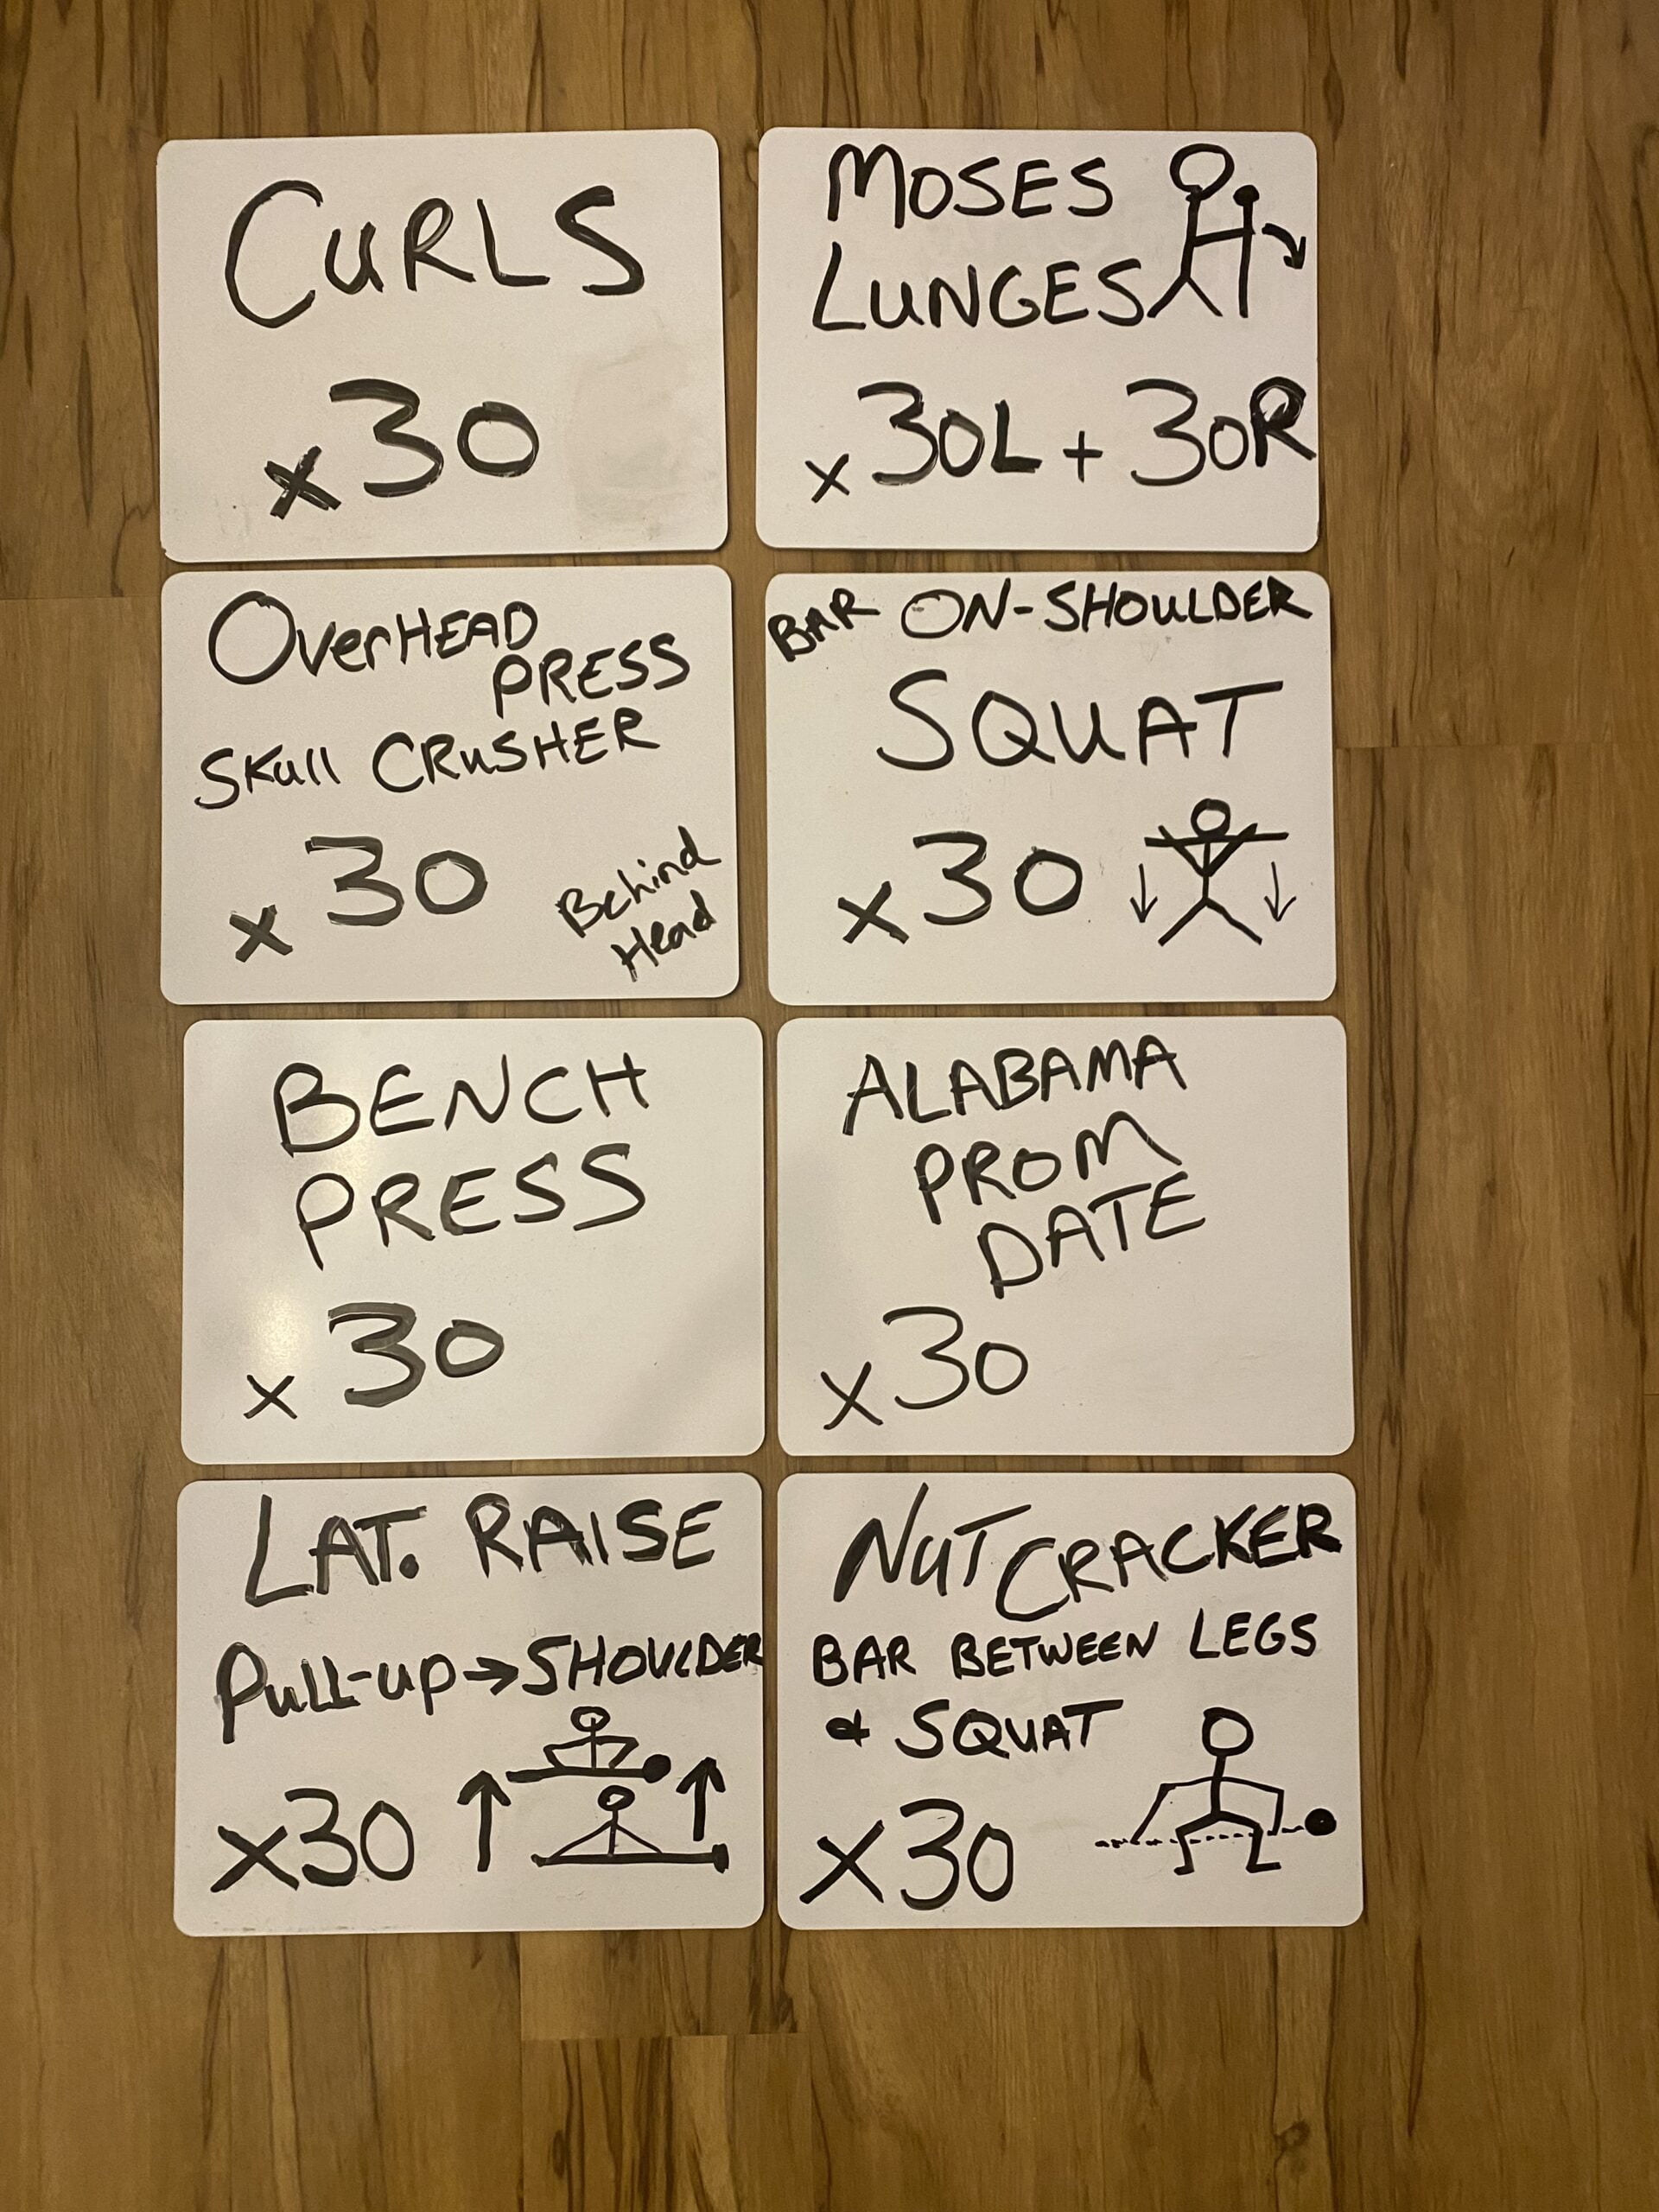 CURLS
x 30
MOSES
LUNGES
x 30L + 30R
OverHEAD
PRESS
SKull CRUSHER
x 30
Behind
Head
BAR ON-SHOULDER
SQUAT
x 30
BENCH
PRESS
x 30
ALABAMA
PROM
DATE
x 30
LAT. RAISE
Pull-up → SHOULDER
x30
NUTCRACKER
BAR BETWEEN LEGS
& SQUAT
x30